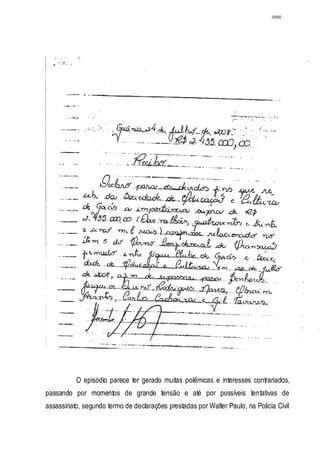 Goiânia, 24 de julho de 2008.
R$ 2.435.000,00
Recibo
Declaro para os devidos fins que re
cebi da Sociedade de Educação e Cultura
de Goiás a importância supra de R$
2.435.000,00 (Dois milhões, quatrocentos e trinta
e cinco mil reais) relacionado no
Item 5 do Termo de Transação
firmado entre Jóquei Clube de Goiás e Socie
dade de Educação e Cultura em de julho
de 2008, a fim de repassar para
Rodrigues Naves,
Carlos Cachoeira e Gil Tavares.
O episódio parece ter gerado muitas polêmicas e interesses contrariados,
passando por momentos de grande tensão e até por possíveis tentativas de
assassinato, segundo termo de declarações prestadas por Walter Paulo, na Polícia Civil